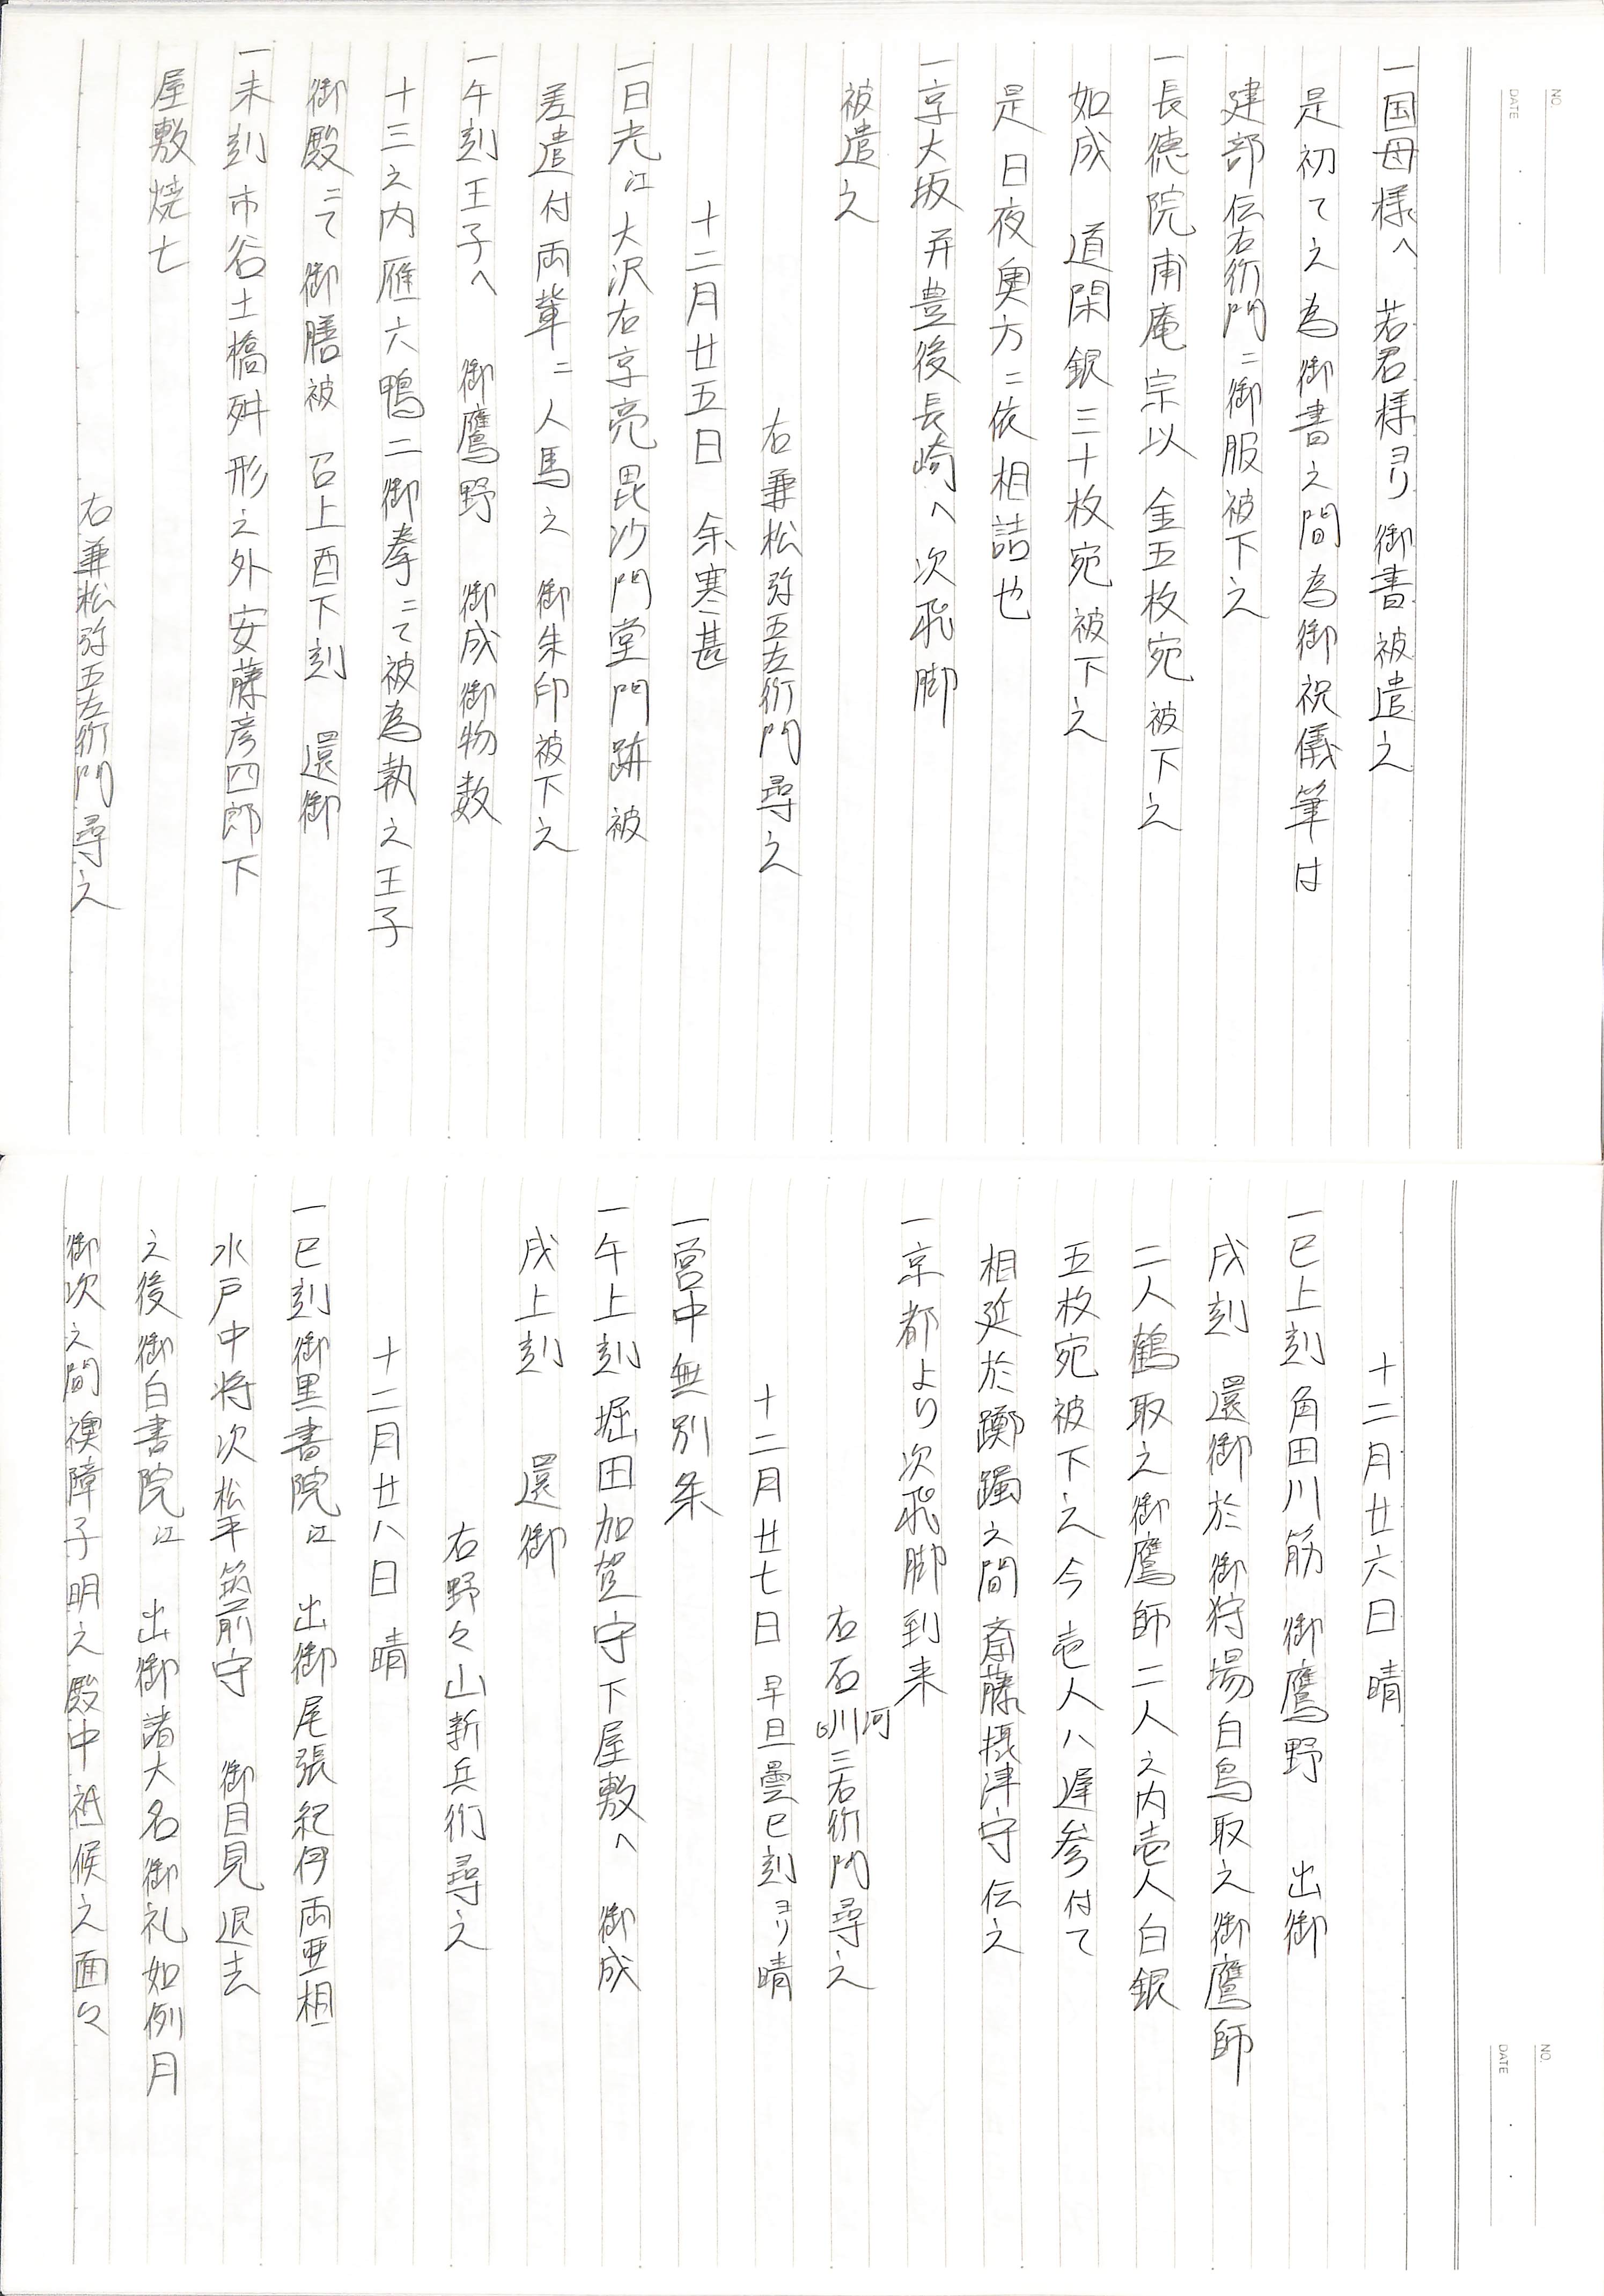 NO.
DATE
一国母様へ 若君様ヨリ御書被遣之
是初て之為御書之間為御祝儀筆は
建部伝右衛門ニ御服被下之
一長徳院甫庵宗以金五枚宛被下之
如成 道閑銀三十枚宛被下之
是日夜奥方ニ依相詰也
一京大坂并豊後長崎へ次飛脚
被遣之
右兼松弥五左衛門尋之
十二月廿五日 余寒甚
一日光江大沢右京亮毘沙門堂門跡被
差遣付両輩ニ人馬之御朱印被下之
一午刻王子へ 御鷹野 御成御物数
十三之内雁六鴨二御拳ニて被為執之王子
御殿ニて御膳被 召上酉下刻 還御
一未刻市谷土橋舛形之外安藤彦四郎下
屋敷焼亡
右兼松弥五左衛門尋之
NO.
DATE
十二月廿六日 晴
一巳上刻角田川筋御鷹野 出御
戌刻 還御於御狩場白鳥取之御鷹師
二人鶴取之御鷹師二人之内壱人白銀
五枚宛被下之今壱人ハ遅参付て
相延於躑躅之間斎藤摂津守伝之
一京都より次飛脚到来
右石川河三右衛門尋之
十二月廿七日 早旦曇巳刻ヨリ晴
一営中無別条
一午上刻堀田加賀守下屋敷へ 御成
戌上刻 還御
右野々山新兵衛尋之
十二月廿八日 晴
一巳刻御黒書院江 出御尾張紀伊両亜相
水戸中将次松平筑前守 御目見退去
之後御白書院江 出御諸大名御礼如例月
御次之間襖障子明之殿中祗候之面々